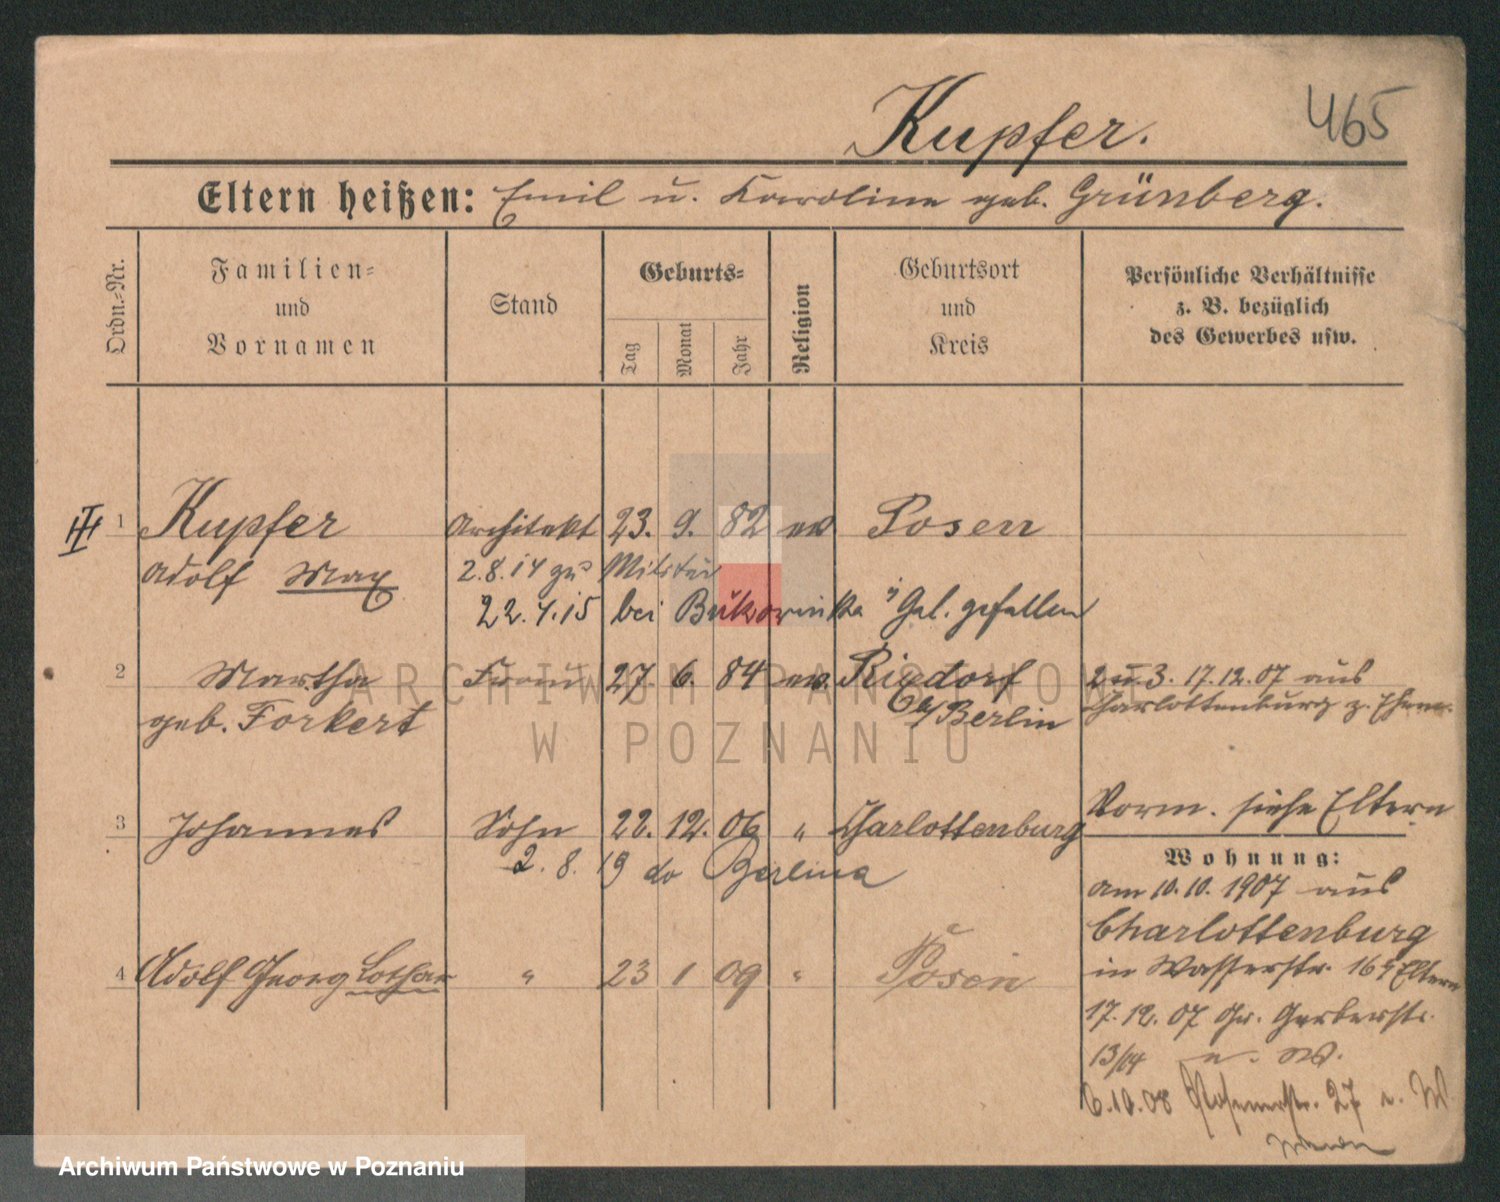 Kupfer.
465
Eltern heißen: Emil u. Karoline geb. Grünberg.
Ordn.-Nr.
Familien-
und
Vornamen
Stand
Geburts-
Tag
Monat
Jahr
Religion
Geburtsort
und
Kreis
Persönliche Verhältnisse
z. B. bezüglich
des Gewerbes usw.
1 Kupfer Architekt 23. 9. 82 ev Posen
Adolf Max 2.8.14 zu Militär
22.4.15 bei Bukowinka Gal. gefallen
2 Martha Frau 27. 6. 84 ev. Rixdorf 2 u 3. 17.12.07 aus
geb. Forkert b/Berlin Charlottenburg z. Ehem.
3 Johannes Sohn 22. 12. 06 " Charlottenburg
2. 8. 19 do Berlina
4 Adolf Georg Lothar " 23 1 09 " Posen
Vorm. siehe Eltern
Wohnung:
am 10.10.1907 aus
Charlottenburg
in Wasserstr. 16 Eltern
17.12.07 Gr. Gerberstr.
13/14 u. W.
6.10.08 27 u. W
ARCHIWUM PAŃSTWOWE
W POZNANIU
Archiwum Państwowe w Poznaniu